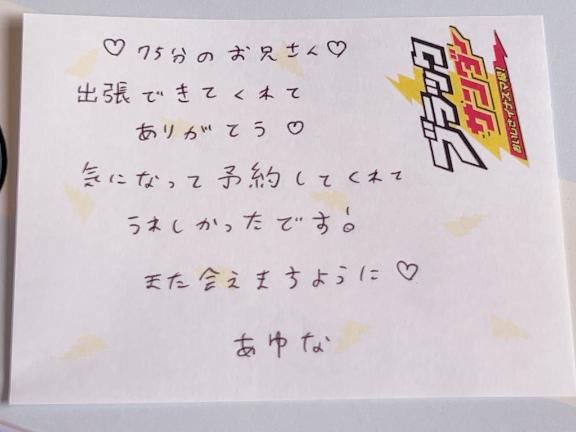 ♡75分のお兄さん♡
出張できてくれて
ありがとう♡
気になって予約してくれて
うれしかったです!
また会えますように♡
あゆな
ブラック
サンダー
おいしさイナズマ級!